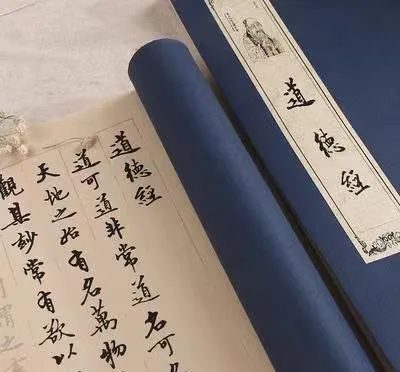 道德經
道德經
道可道非常道名可
天地之始有名萬物
觀其妙常有欲以
謂之